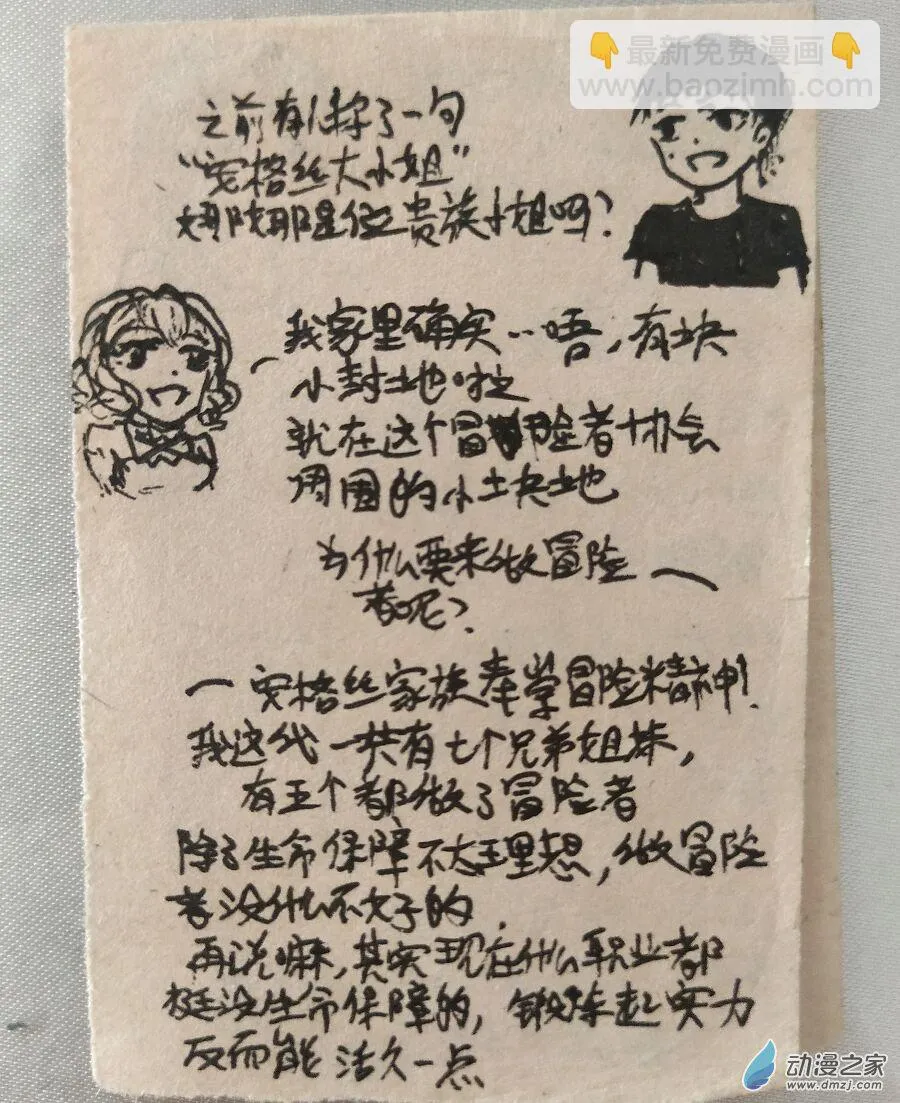 👇最新免费漫画👇
www.baozimh.com
之前有人称了一句
“安格丝大小姐”
娜娜是位贵族小姐吗？
我家里确实…唔，有块
小封土地啦
就在这个冒险者协会
周围的小土块地
为什么要来做冒险
者呢？
安格丝家族奉学冒险精神！
我这代一共有七个兄弟姐妹，
有五个都做了冒险者
除了生命保障不太理想，做冒险
者没什么不好的．
再说嘛，其实现在什么职业都
挺没生命保障的，锻炼起实力
反而能活久一点
动漫之家
www.dmzj.com